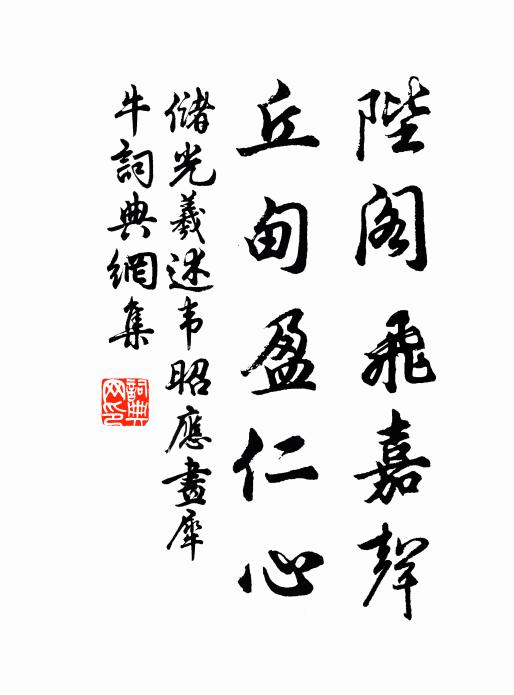 陛阁飛嘉聲
丘甸盈仁心
儲光羲述韦昭應畫犀
牛詞典網集
詞典网印